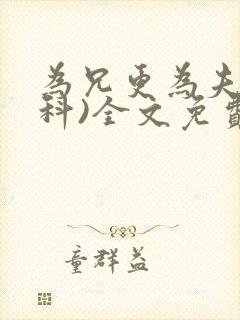 為兄更為夫
科)全文免費
童群益